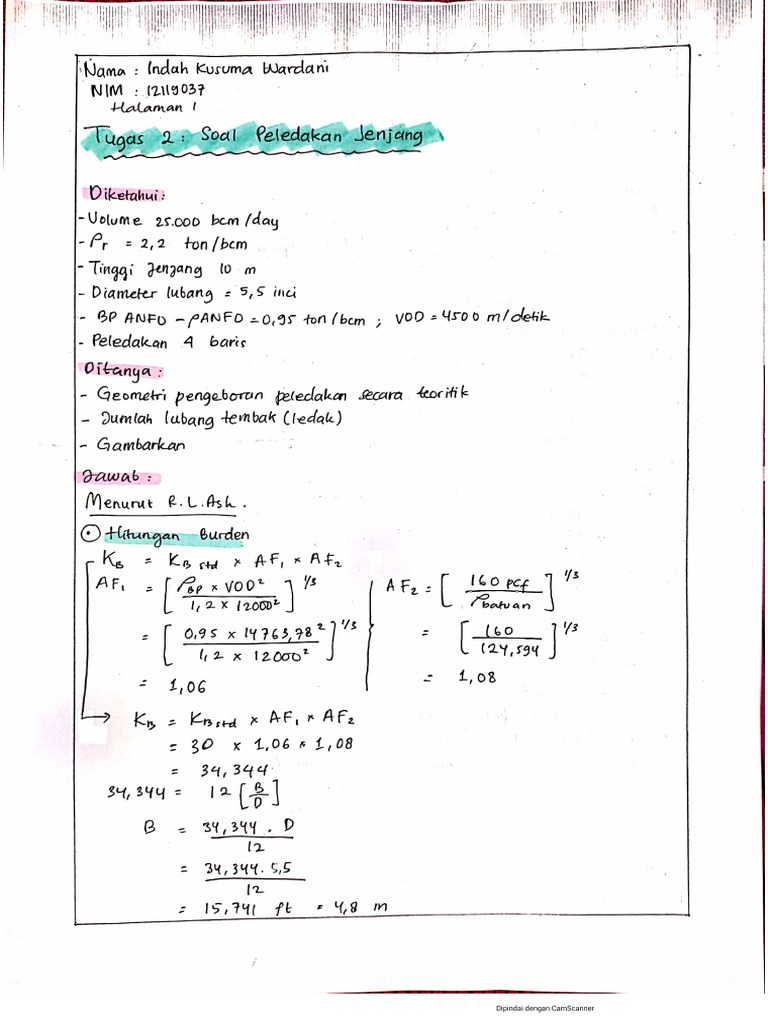 Nama : Indah Kusuma Wardani
NIM : 12119037
Halaman 1
Tugas 2 : Soal Peledakan Jenjang
Diketahui :
- Volume 25.000 bcm/day
- ρr = 2,2 ton/bcm
- Tinggi Jenjang 10 m
- Diameter lubang = 5,5 inci
- BP ANFO - ρANFO = 0,95 ton/bcm ; VOD = 4500 m/detik
- Peledakan 4 baris
Ditanya :
- Geometri pengeboran peledakan secara teoritik
- Jumlah lubang tembak (ledak)
- Gambarkan
Jawab :
Menurut R.L.Ash.
⊙ Hitungan Burden
KB = KB std × AF1 × AF2
AF1 = [ρBP × VOD² / 1,2 × 12000²]^1/3
= [0,95 × 14763,78² / 1,2 × 12000²]^1/3
= 1,06
AF2 = [160 pcf / ρbatuan]^1/3
= [160 / 124,594]^1/3
= 1,08
→ KB = KB std × AF1 × AF2
= 30 × 1,06 × 1,08
= 34,344
34,344 = 12 [B/D]
B = 34,344 . D / 12
= 34,344 . 5,5 / 12
= 15,741 ft = 4,8 m
Dipindai dengan CamScanner